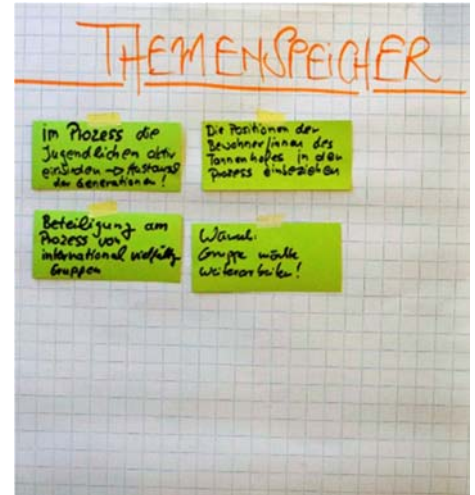 THEMENSPEICHER
im Prozess die
Jugendlichen aktiv
einbinden → Austausch
der Generationen!
Die Positionen der
Bewohner/innen des
Tannenhofes in den
Prozess einbeziehen
Beteiligung am
Prozess von
international vielfältig
Gruppen
Wunsch:
Gruppe möchte
weiterarbeiten!